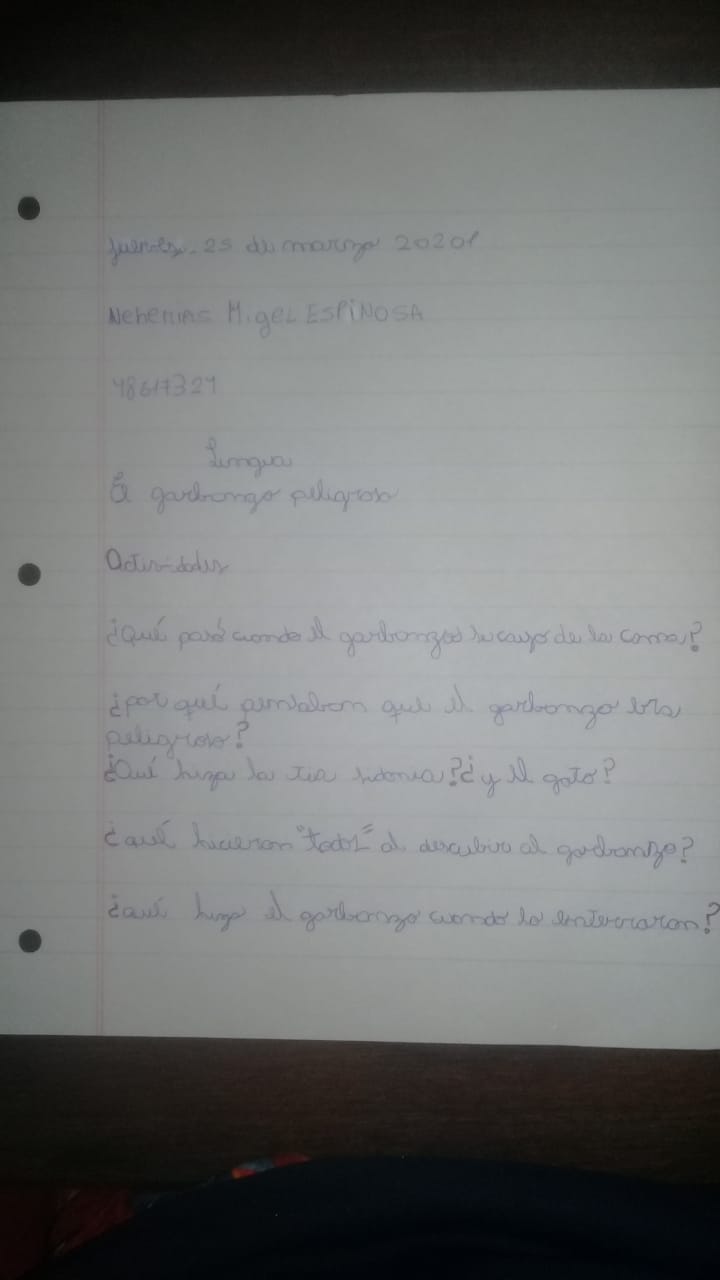 jueves 25 de marzo 20201
Nehemias Migel ESPINOSA
48617321
Lengua
El garbanzo peligroso
Actividades
¿Qué pasó cuando el garbanzo se cayo de la cama?
¿por qué pensaban que el garbanzo era
peligroso?
¿Qué hizo la tia sidonia?¿y el gato?
¿qué hicieron "todos" al descubrir al garbanzo?
¿qué hizo el garbanzo cuando lo enterraron?